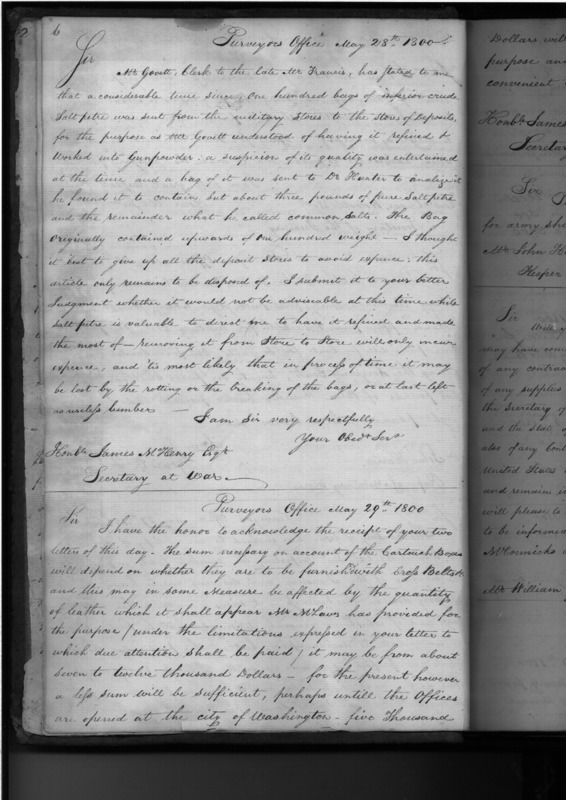 6
Purveyors Office May 28th 1800
Sir
Mr Govett, Clerk to the late Mr Francis, has stated to me
that a considerable time since, One hundred bags of inferior crude
Salt petre was sent from the military Stores to the Store of Deposite,
for the purpose as Mr Govett understood of having it refined &
worked into Gunpowder. a suspicion of its quality was entertained
at the time and a bag of it was sent to Dr Hunter to analize it
he found it to contain but about three pounds of pure Salt petre
and the remainder what he called common Salts. The Bag
Originally contained upwards of One hundred weight — I thought
it best to give up all the deposit Stores to avoid expence; this
article only remains to be disposed of. I submit it to your better
Judgment whether it would not be adviseable at this time while
Salt petre is valuable to direct me to have it refined and made
the most of — removing it from Store to Store will only incur
expence, and 'tis most likely that in process of time it may
be lost by the rotting or the breaking of the bags, or at last left
as useless lumber —
I am Sir very respectfully
Your Obedt Servt
Honble James McHenry Esqr
Secretary at War
Purveyors Office May 29th 1800
Sir
I have the honor to acknowledge the receipt of your two
letters of this day. The sum necessary on account of the Cartouch Boxes
will depend on whether they are to be furnish'd with Cross Belts &c
and this may in some Measure be affected by the quantity
of leather which it shall appear Mr McLaws has provided for
the purpose (under the limitations expressed in your letter to
which due attention shall be paid) it may be from about
seven to twelve thousand Dollars — for the present however
a less sum will be sufficient, perhaps untill the Offices
are opened at the city of Washington — five Thousand
Dollars, with
purpose and
convenient
Honble James
Secretary
Sir
for army
Mr John
Keeper
Sir
may have
of any contra
of any supplies
the Secretary of
and the
also of any
United States
and remains
will please to
to be informed
McCormicks
Mr William